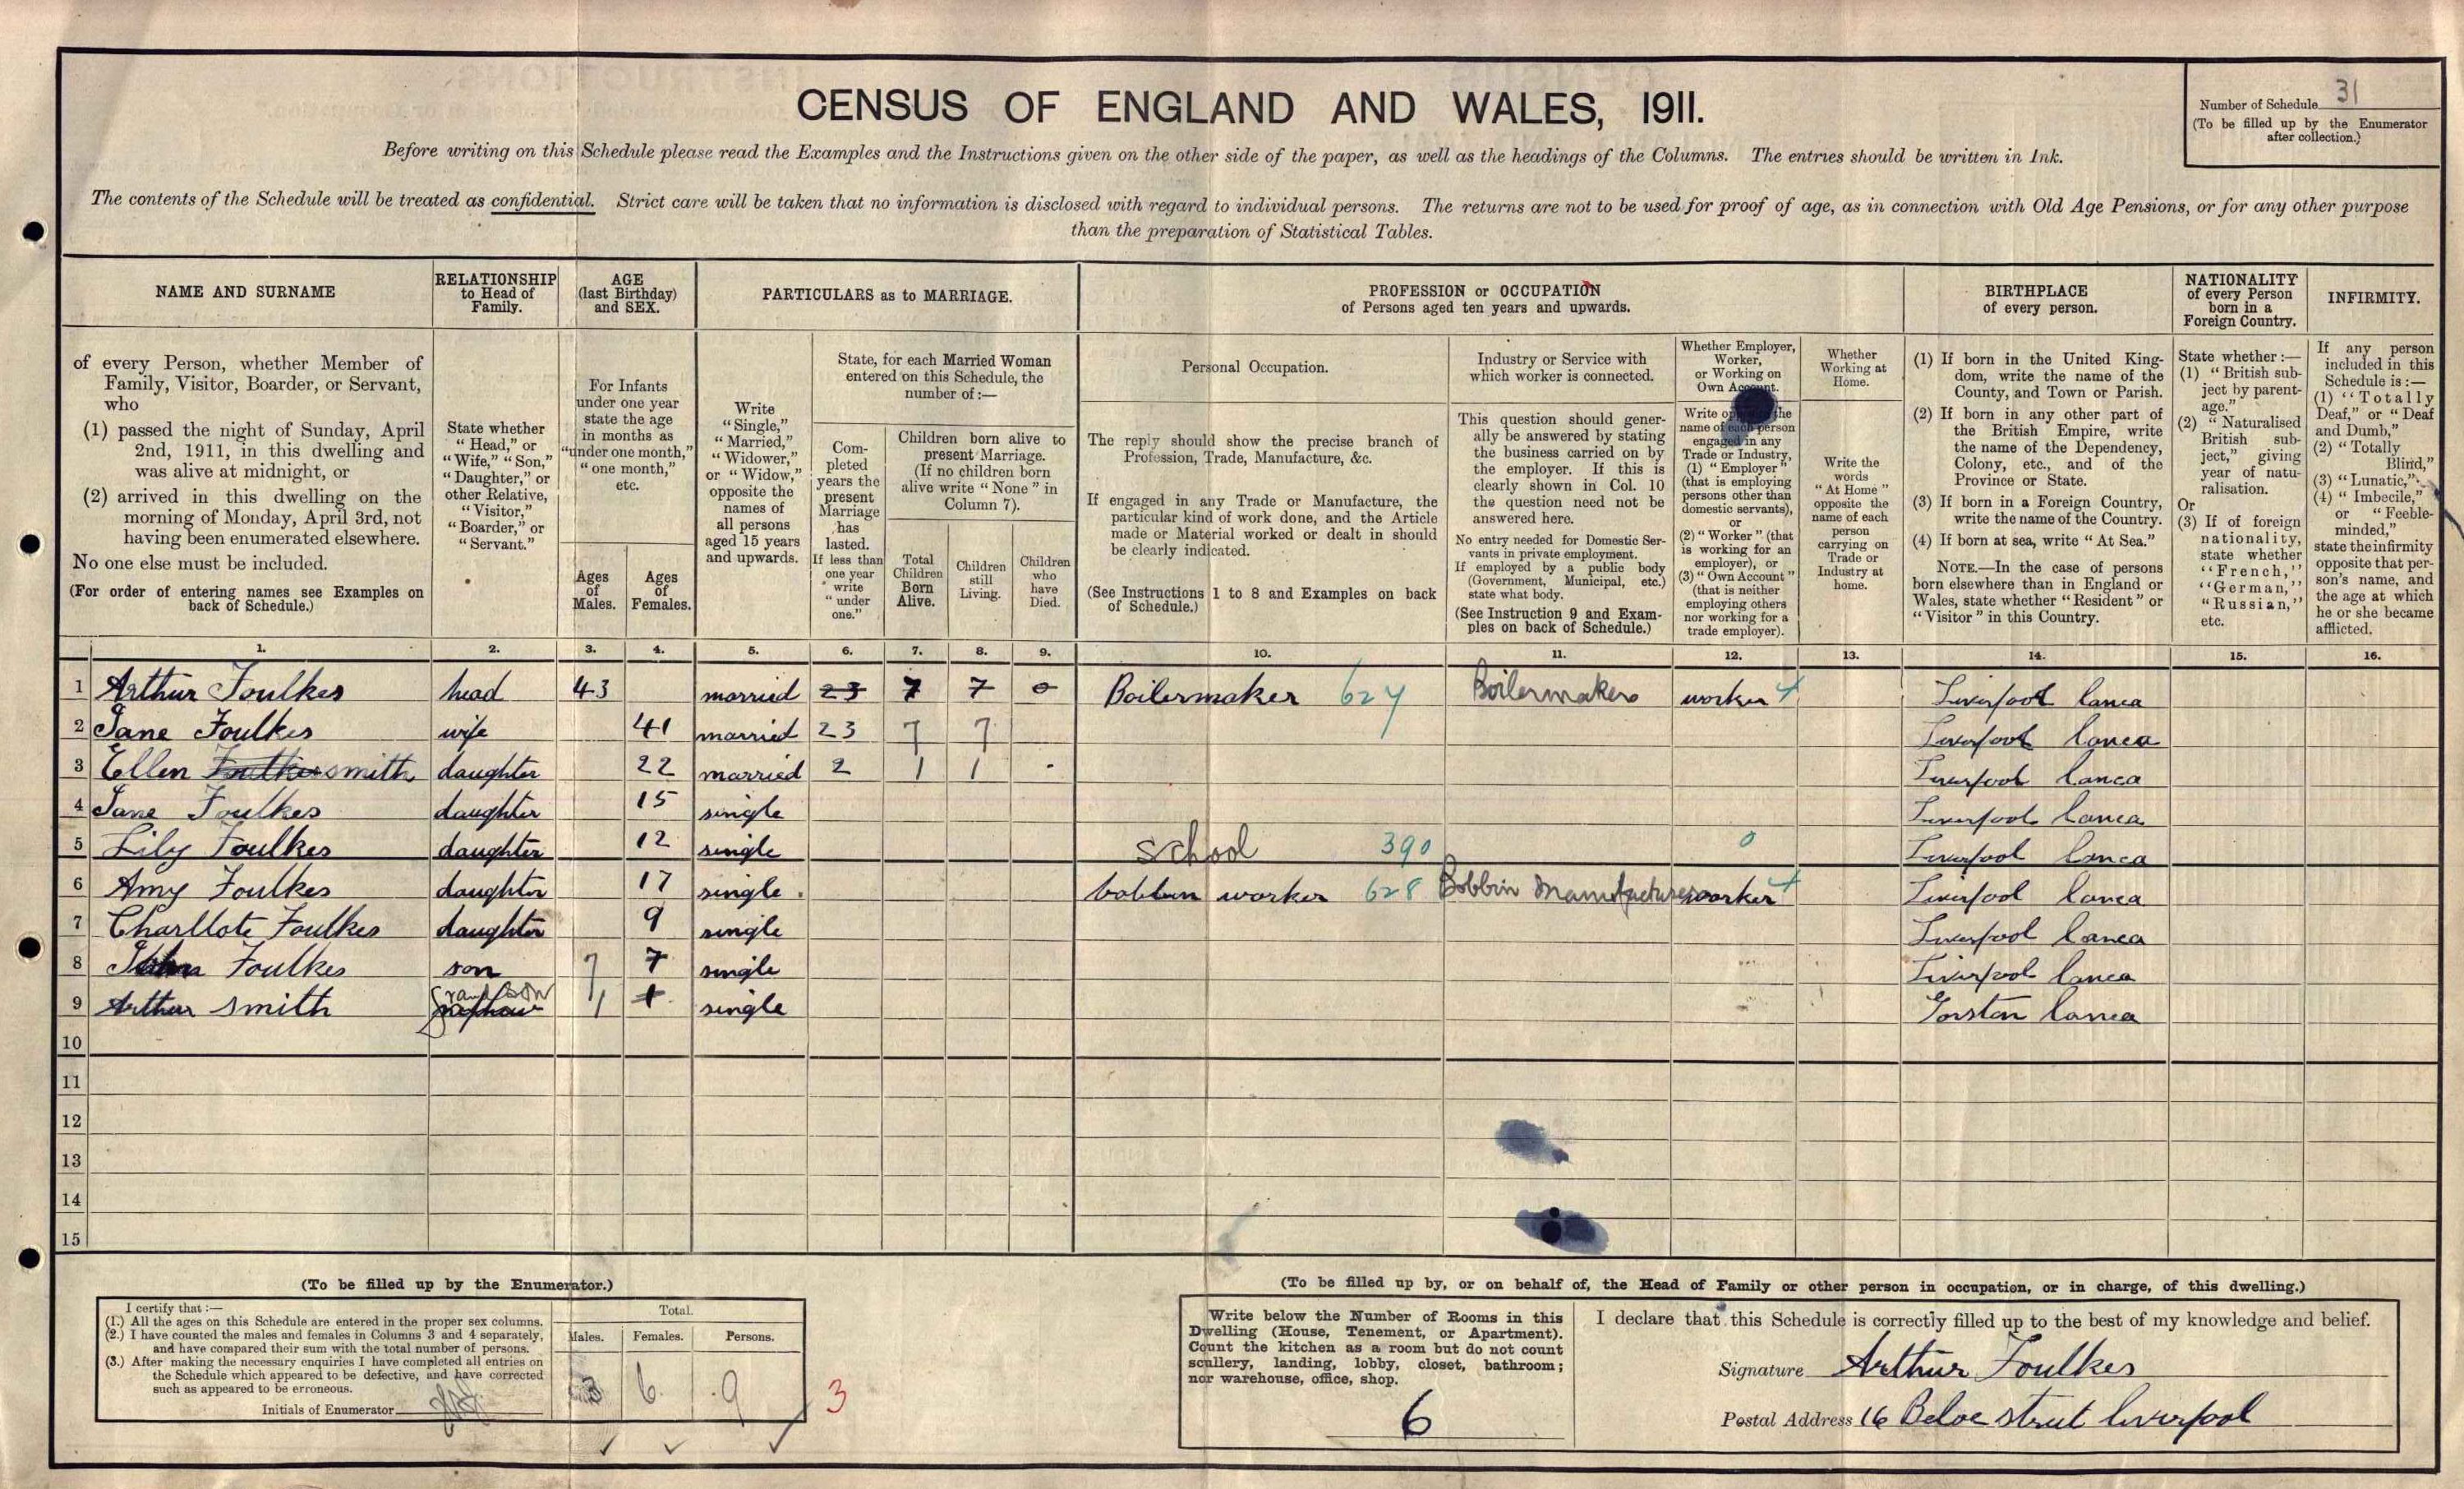 CENSUS OF ENGLAND AND WALES, 1911.
Number of Schedule 31
(To be filled up by the Enumerator
after collection.)
Before writing on this Schedule please read the Examples and the Instructions given on the other side of the paper, as well as the headings of the Columns. The entries should be written in Ink.
The contents of the Schedule will be treated as confidential. Strict care will be taken that no information is disclosed with regard to individual persons. The returns are not to be used for proof of age, as in connection with Old Age Pensions, or for any other purpose
than the preparation of Statistical Tables.
NAME AND SURNAME
of every Person, whether Member of
Family, Visitor, Boarder, or Servant,
who
(1) passed the night of Sunday, April
2nd, 1911, in this dwelling and
was alive at midnight, or
(2) arrived in this dwelling on the
morning of Monday, April 3rd, not
having been enumerated elsewhere.
No one else must be included.
(For order of entering names see Examples on
back of Schedule.)
RELATIONSHIP
to Head of
Family.
State whether
"Head," or
"Wife," "Son,"
"Daughter," or
other Relative,
"Visitor,"
"Boarder," or
"Servant."
AGE
(last Birthday)
and SEX.
For Infants
under one year
state the age
in months as
"under one month,"
"one month,"
etc.
Ages
of
Males.
Ages
of
Females.
PARTICULARS as to MARRIAGE.
Write
"Single,"
"Married,"
"Widower,"
or "Widow,"
opposite the
names of
all persons
aged 15 years
and upwards.
State, for each Married Woman
entered on this Schedule, the
number of:—
Com-
pleted
years the
present
Marriage
has
lasted.
If less than
one year
write
"under
one."
Children born alive to
present Marriage.
(If no children born
alive write "None" in
Column 7).
Total
Children
Born
Alive.
Children
still
Living.
Children
who
have
Died.
PROFESSION or OCCUPATION
of Persons aged ten years and upwards.
Personal Occupation.
The reply should show the precise branch of
Profession, Trade, Manufacture, &c.
If engaged in any Trade or Manufacture, the
particular kind of work done, and the Article
made or Material worked or dealt in should
be clearly indicated.
(See Instructions 1 to 8 and Examples on back
of Schedule.)
Industry or Service with
which worker is connected.
This question should gener-
ally be answered by stating
the business carried on by
the employer. If this is
clearly shown in Col. 10
the question need not be
answered here.
No entry needed for Domestic Ser-
vants in private employment.
If employed by a public body
(Government, Municipal, etc.)
state what body.
(See Instruction 9 and Exam-
ples on back of Schedule.)
Whether Employer,
Worker,
or Working on
Own Account.
Write opposite the
name of each person
engaged in any
Trade or Industry,
(1) "Employer"
(that is employing
persons other than
domestic servants),
or
(2) "Worker" (that
is working for an
employer), or
(3) "Own Account"
(that is neither
employing others
nor working for a
trade employer).
Whether
Working at
Home.
Write the
words
"At Home"
opposite the
name of each
person
carrying on
Trade or
Industry at
home.
BIRTHPLACE
of every person.
(1) If born in the United King-
dom, write the name of the
County, and Town or Parish.
(2) If born in any other part of
the British Empire, write
the name of the Dependency,
Colony, etc., and of the
Province or State.
(3) If born in a Foreign Country,
write the name of the Country.
(4) If born at sea, write "At Sea."
NOTE.—In the case of persons
born elsewhere than in England or
Wales, state whether "Resident" or
"Visitor" in this Country.
NATIONALITY
of every Person
born in a
Foreign Country.
State whether:—
(1) "British sub-
ject by parent-
age."
(2) "Naturalised
British sub-
ject," giving
year of natu-
ralisation.
Or
(3) If of foreign
nationality,
state whether
"French,"
"German,"
"Russian,"
etc.
INFIRMITY.
If any person
included in this
Schedule is:—
(1) "Totally
Deaf," or "Deaf
and Dumb,"
(2) "Totally
Blind,"
(3) "Lunatic,"
(4) "Imbecile,"
or "Feeble-
minded,"
state the infirmity
opposite that per-
son's name, and
the age at which
he or she became
afflicted.
1. 2. 3. 4. 5. 6. 7. 8. 9. 10. 11. 12. 13. 14. 15. 16.
1 Arthur Foulkes head 43 married 23 7 7 0 Boilermaker 627 Boilermakers worker Liverpool lanca
2 Jane Foulkes wife 41 married 23 7 7 Liverpool lanca
3 Ellen Foulkes smith daughter 22 married 2 1 1 Liverpool lanca
4 Jane Foulkes daughter 15 single Liverpool lanca
5 Lily Foulkes daughter 12 single school 390 0 Liverpool lanca
6 Amy Foulkes daughter 17 single bobbin worker 628 Bobbin Manufacturer worker Liverpool lanca
7 Charllote Foulkes daughter 9 single Liverpool lanca
8 John Foulkes son 7 7 single Liverpool lanca
9 Arthur smith Grandson nephew 1 1 single Garston lanca
10
11
12
13
14
15
(To be filled up by the Enumerator.)
I certify that:—
(1.) All the ages on this Schedule are entered in the proper sex columns.
(2.) I have counted the males and females in Columns 3 and 4 separately,
and have compared their sum with the total number of persons.
(3.) After making the necessary enquiries I have completed all entries on
the Schedule which appeared to be defective, and have corrected
such as appeared to be erroneous.
Initials of Enumerator
Total.
Males. Females. Persons.
3 6 9 3
(To be filled up by, or on behalf of, the Head of Family or other person in occupation, or in charge, of this dwelling.)
Write below the Number of Rooms in this
Dwelling (House, Tenement, or Apartment).
Count the kitchen as a room but do not count
scullery, landing, lobby, closet, bathroom;
nor warehouse, office, shop.
6
I declare that this Schedule is correctly filled up to the best of my knowledge and belief.
Signature Arthur Foulkes
Postal Address 16 Beloe street liverpool